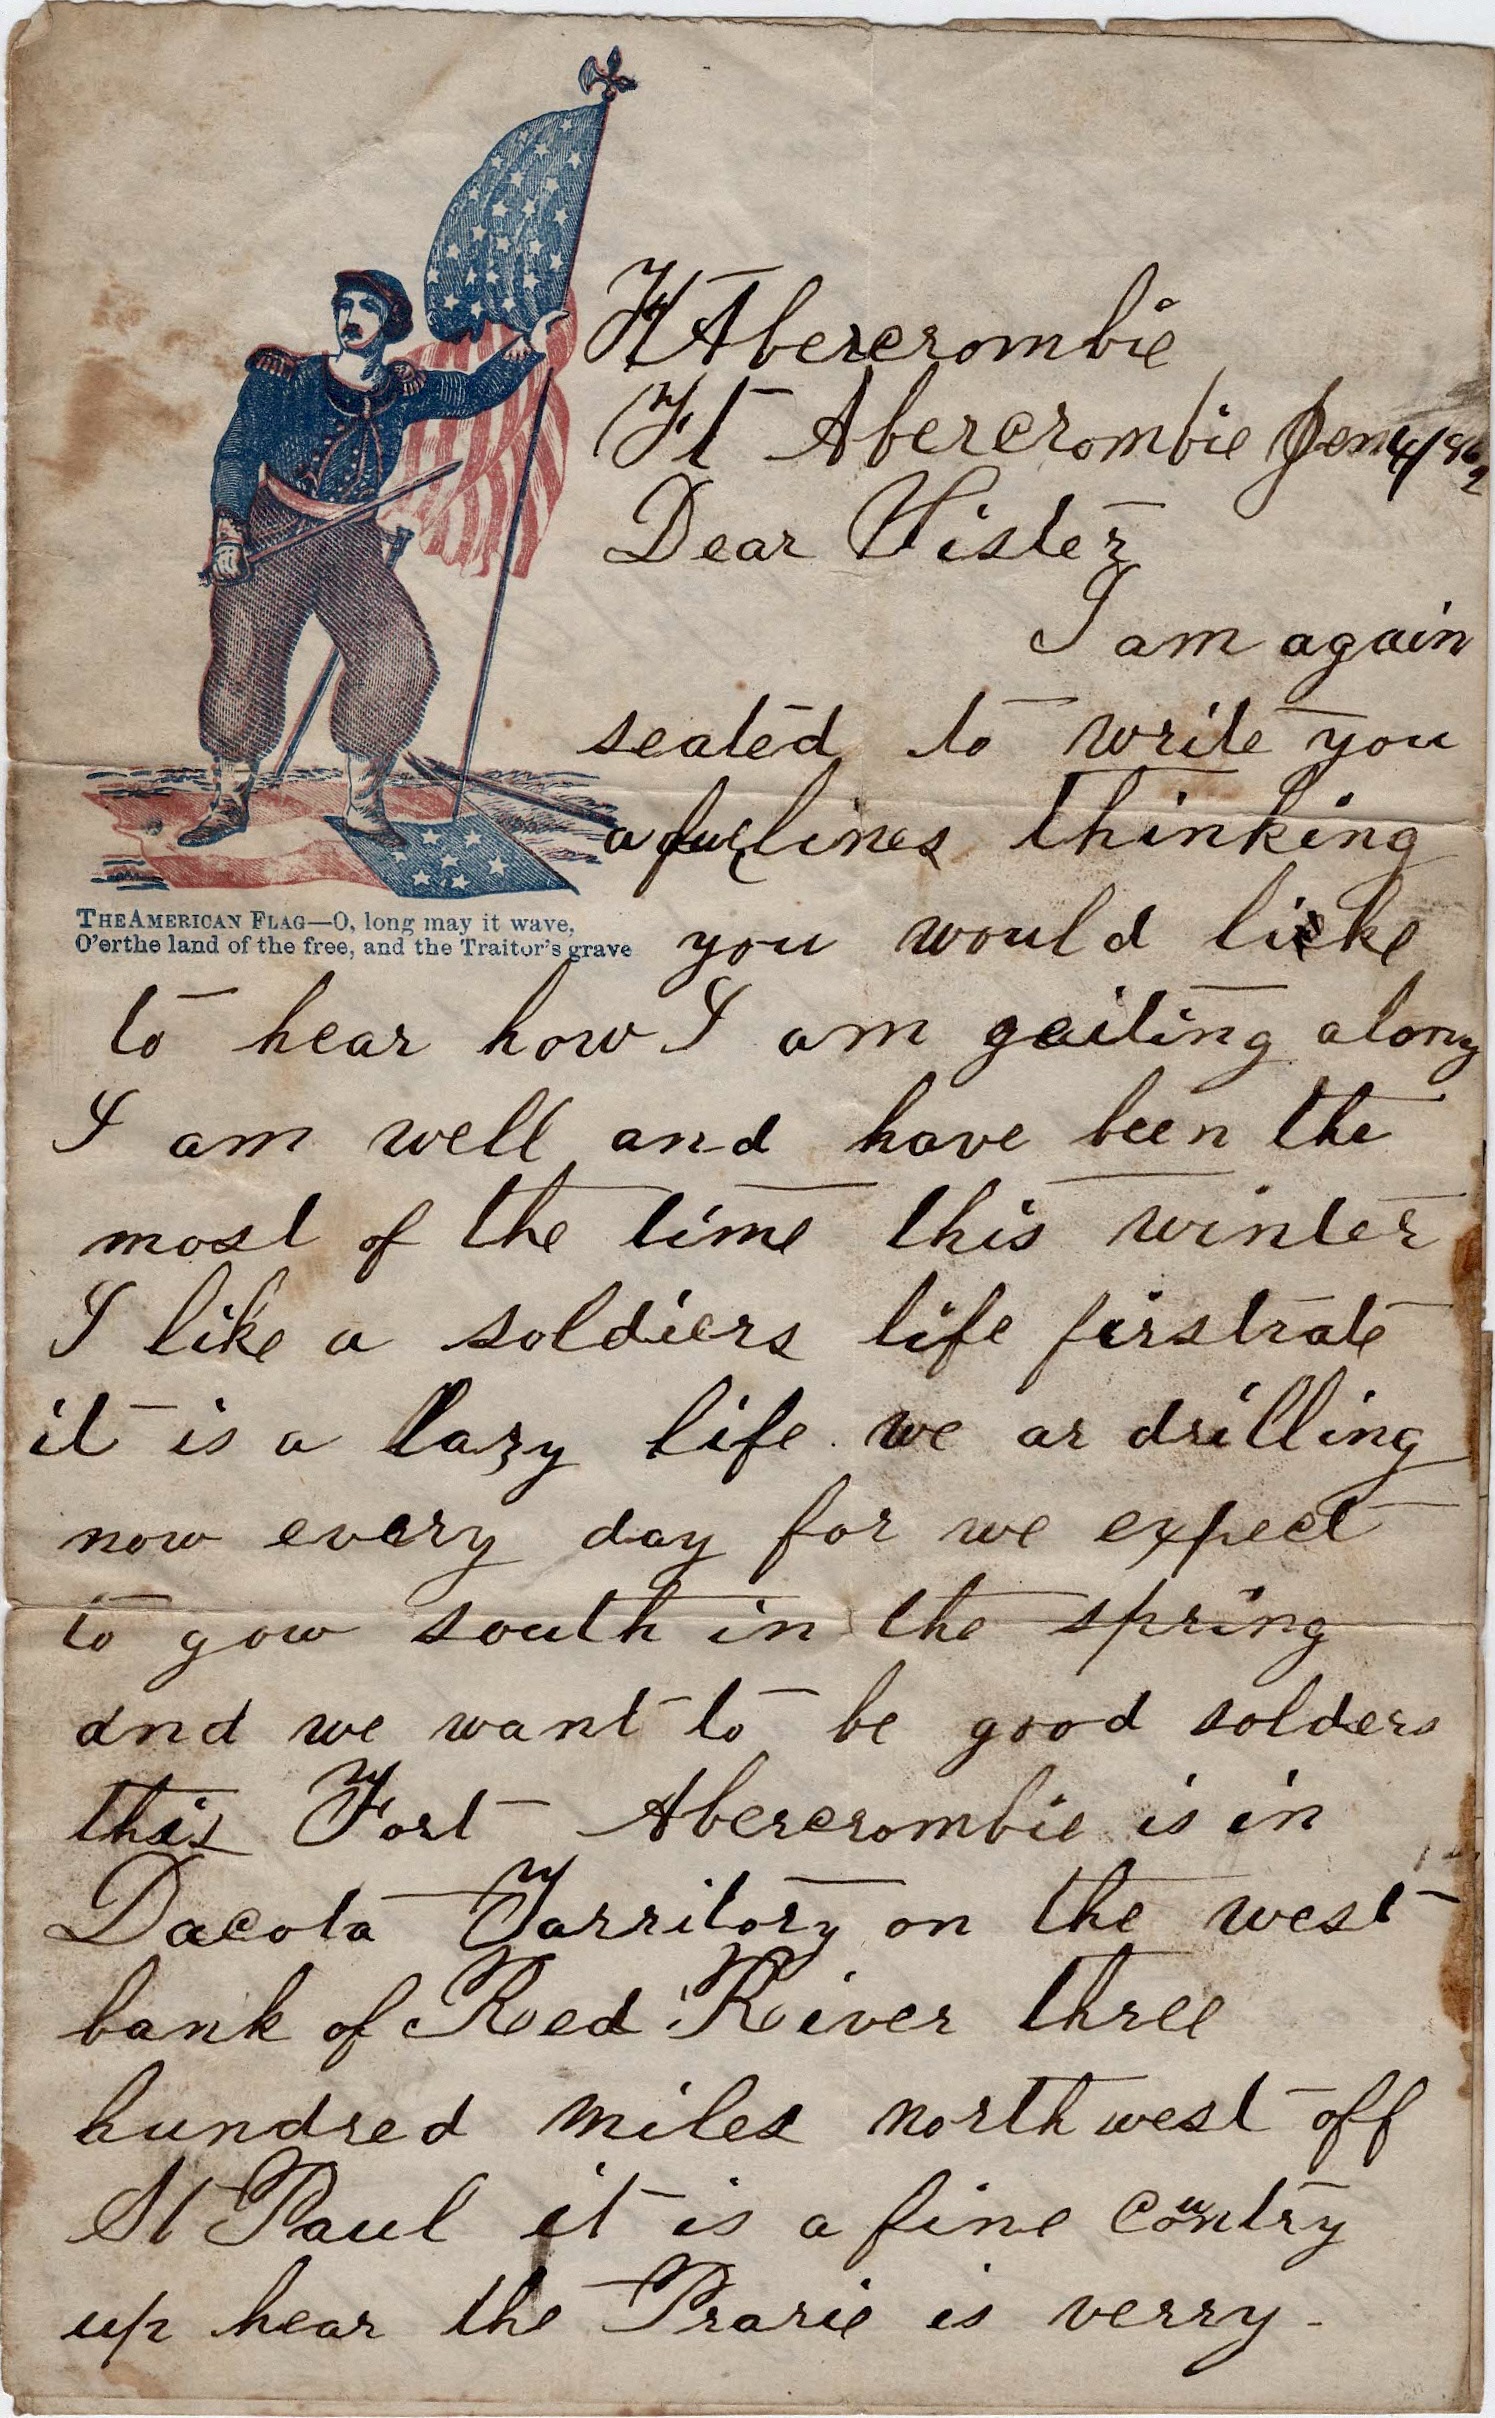 Ft Abercrombie
Ft Abercrombie Jen 4 1862
Dear Sister
I am again
seated to write you
a few lines thinking
you would like
to hear how I am geiting along
I am well and have been the
most of the time this winter
I like a soldiers life firstrate
it is a lazy life we ar drilling
now every day for we expect
to gow south in the spring
and we want to be good solders
this Fort Abercrombie is in
Dacota Tarritory on the west
bank of Red River three
hundred miles north west off
St Paul it is a fine country
up hear the Prarie is verry
THE AMERICAN FLAG—O, long may it wave,
O'erthe land of the free, and the Traitor's grave